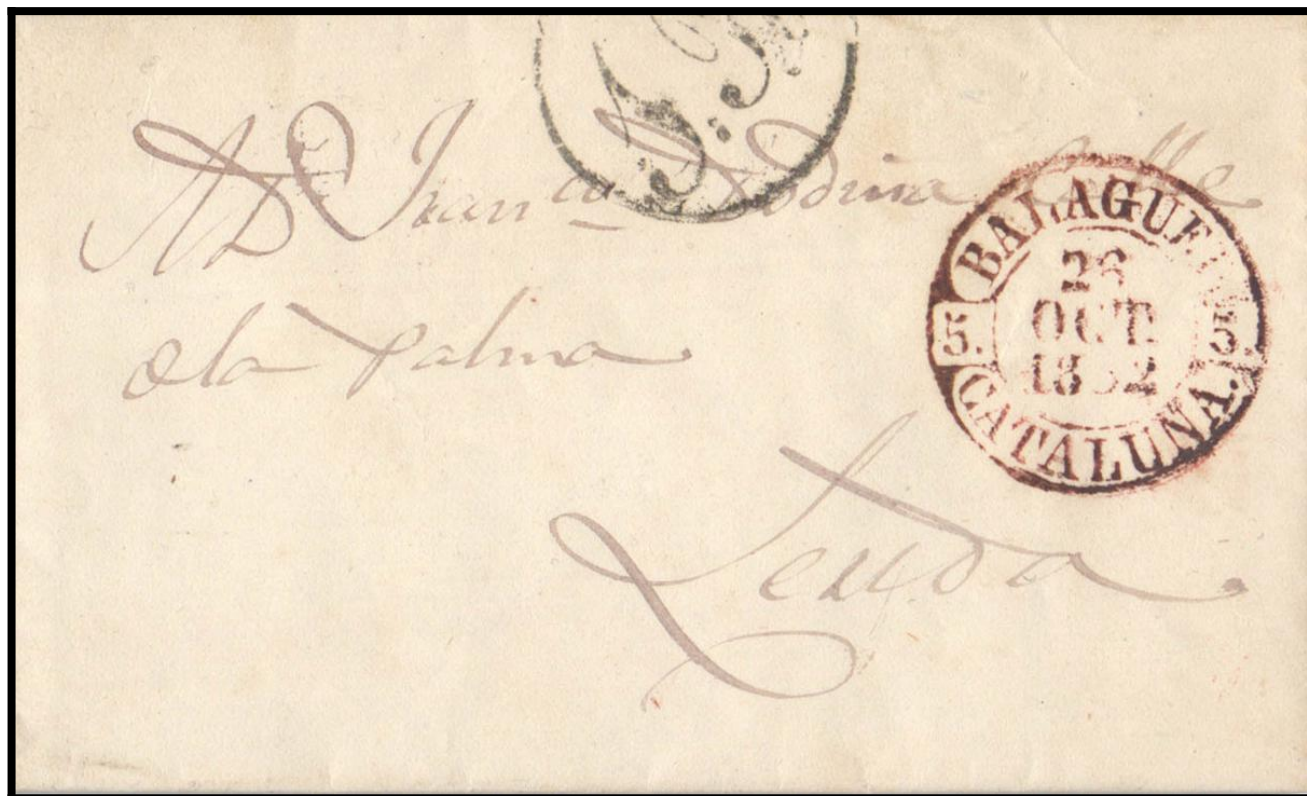 A D Fran.co Calle
de la Palma
Lerida
BALAGUER
26
OCT.
1852
5. 5.
CATALUÑA.